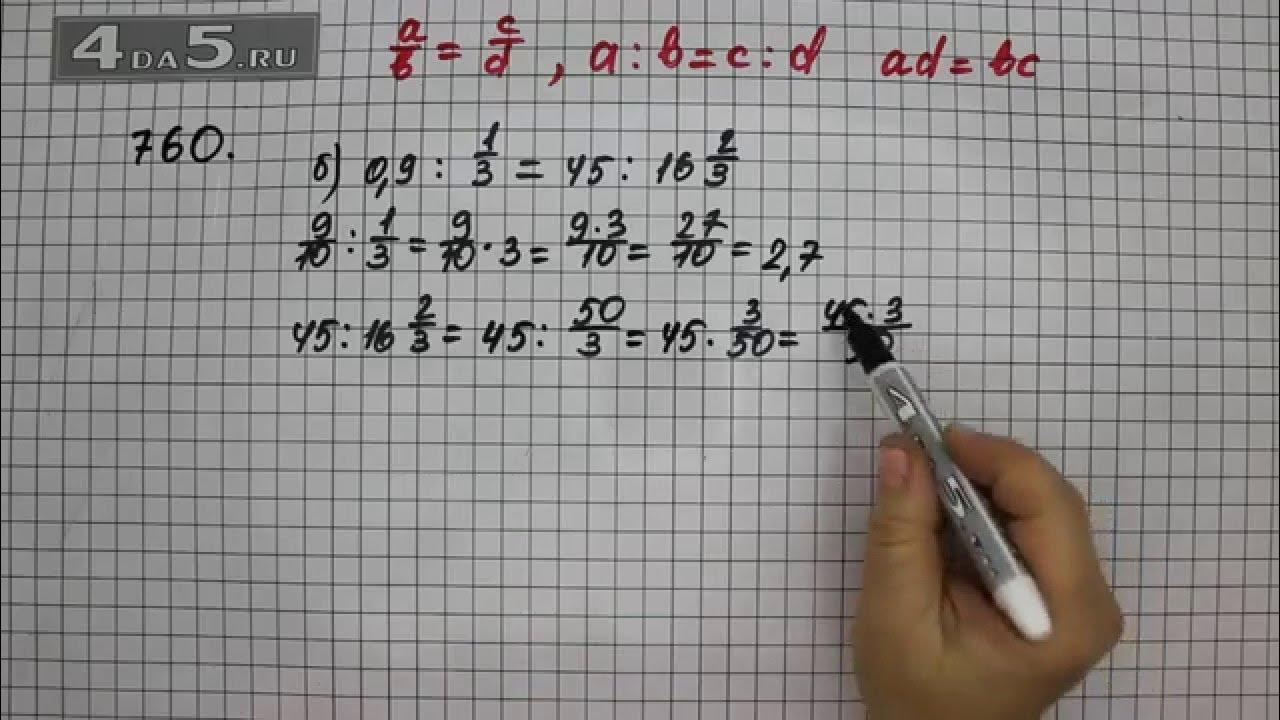 4DA5.RU
a/b = c/d , a : b = c : d ad = bc
760.
б) 0,9 : 1/3 = 45 : 16 2/3
9/10 : 1/3 = 9/10 · 3 = 9·3/10 = 27/10 = 2,7
45 : 16 2/3 = 45 : 50/3 = 45 · 3/50 = 45·3/50